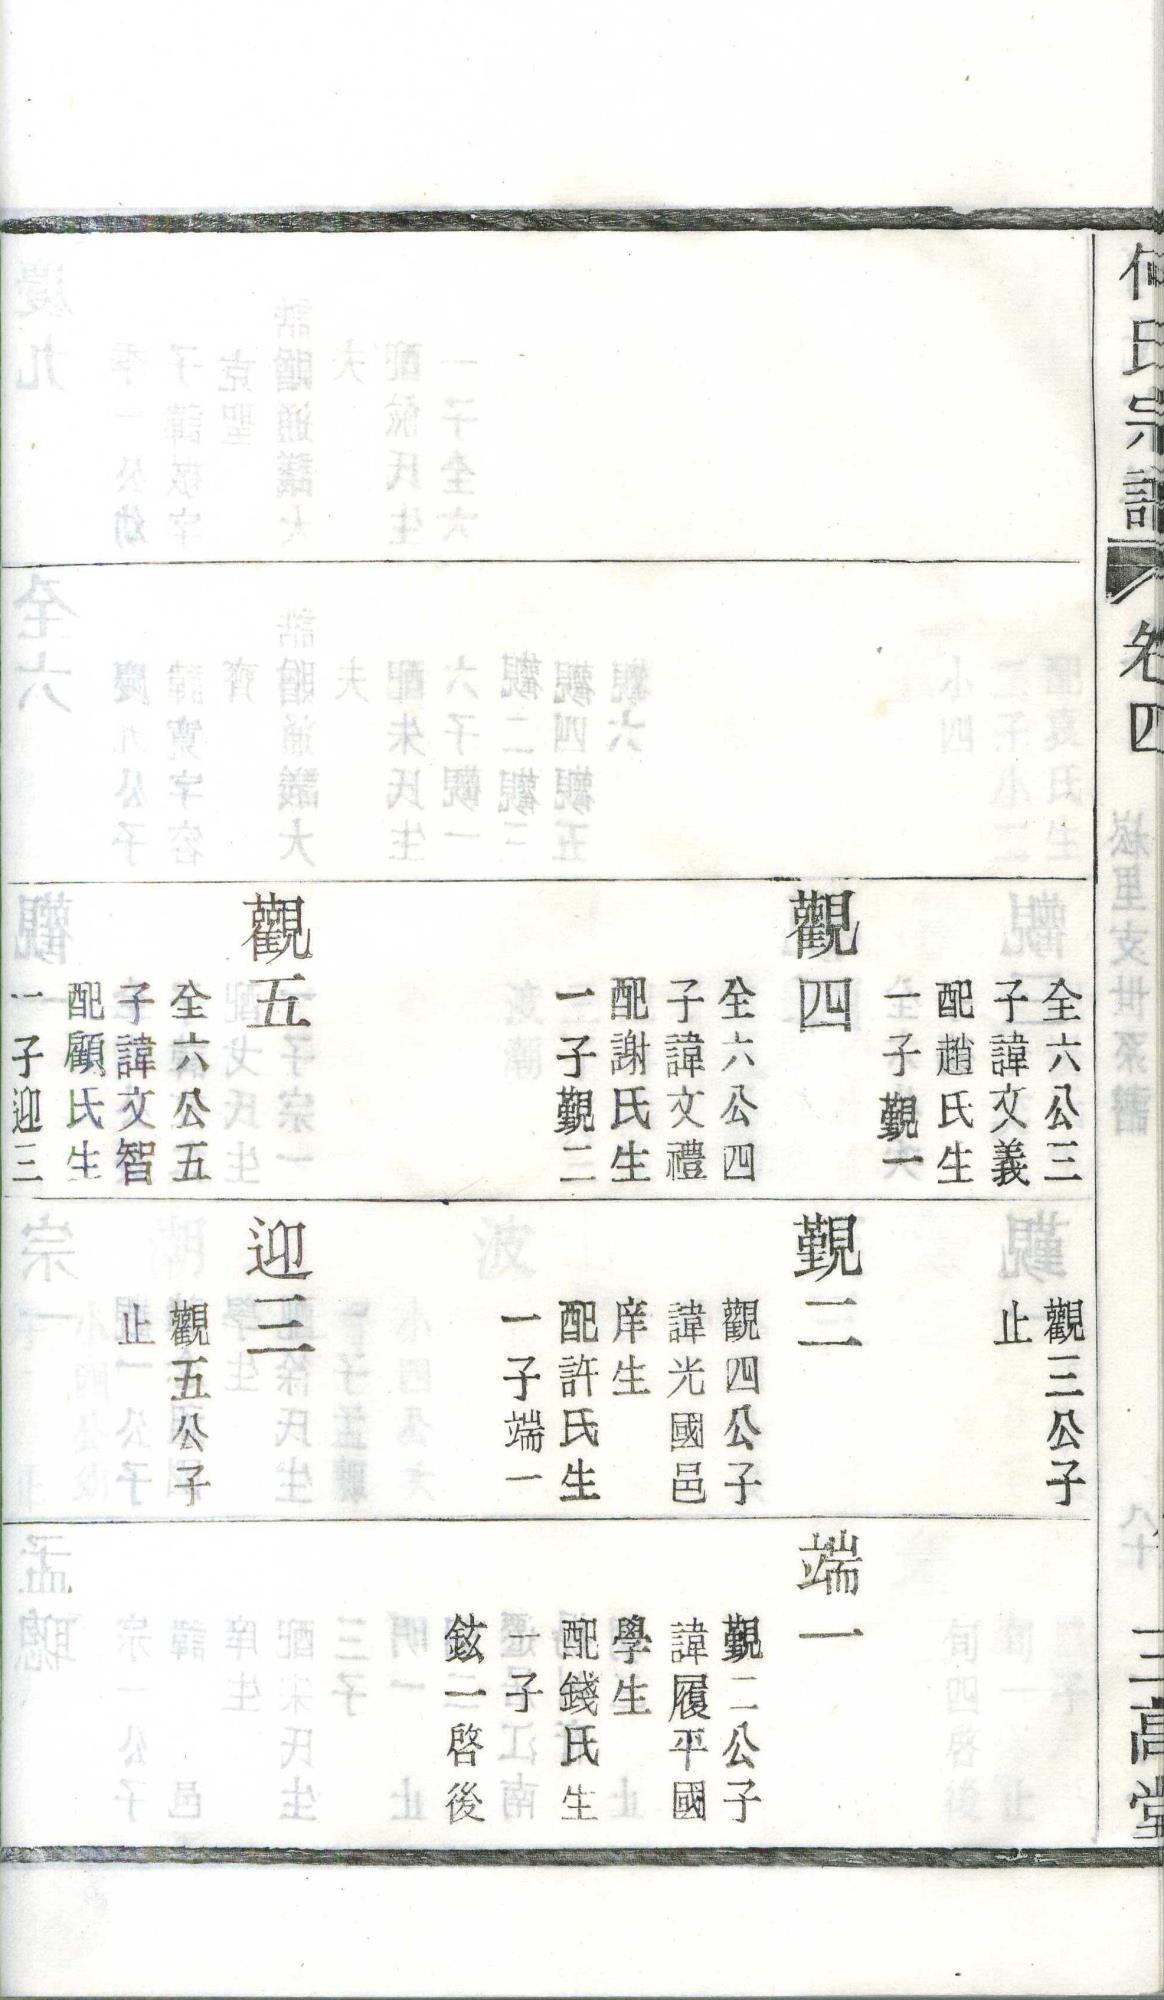 何氏宗譜
卷四
三高堂
全六公三
子諱文義
配趙氏生
一子觐一
觀四
全六公四
子諱文禮
配謝氏生
一子觐二
觀五
全六公五
子諱文智
配顧氏生
一子迎三
觀三公子
止
觐二
觀四公子
諱光國邑
庠生
配許氏生
一子端一
迎三
觀五公子
止
端一
觐二公子
諱履平國
學生
配錢氏生
一子
鉉一啓後